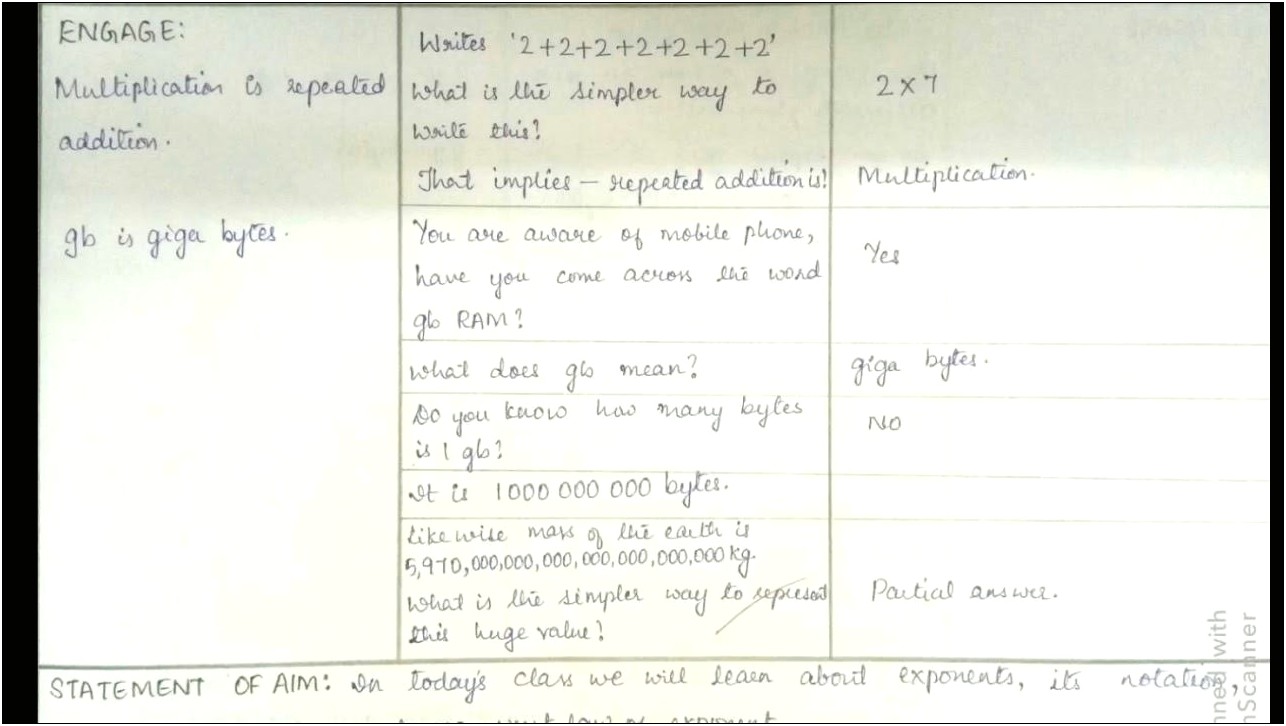 ENGAGE:
Multiplication is repeated
addition.
Writes '2+2+2+2+2+2+2'
What is the simpler way to
write this?
2 × 7
That implies – repeated addition is?
Multiplication.
gb is giga bytes.
You are aware of mobile phone,
have you come across the word
gb RAM?
Yes
What does gb mean?
giga bytes.
Do you know how many bytes
is 1 gb?
NO
It is 1000 000 000 bytes.
Likewise mass of the earth is
5,970,000,000,000,000,000,000,000 kg.
What is the simpler way to represent
this huge value?
Partial answer.
STATEMENT OF AIM: In today's class we will learn about exponents, its notation,
law of exponent